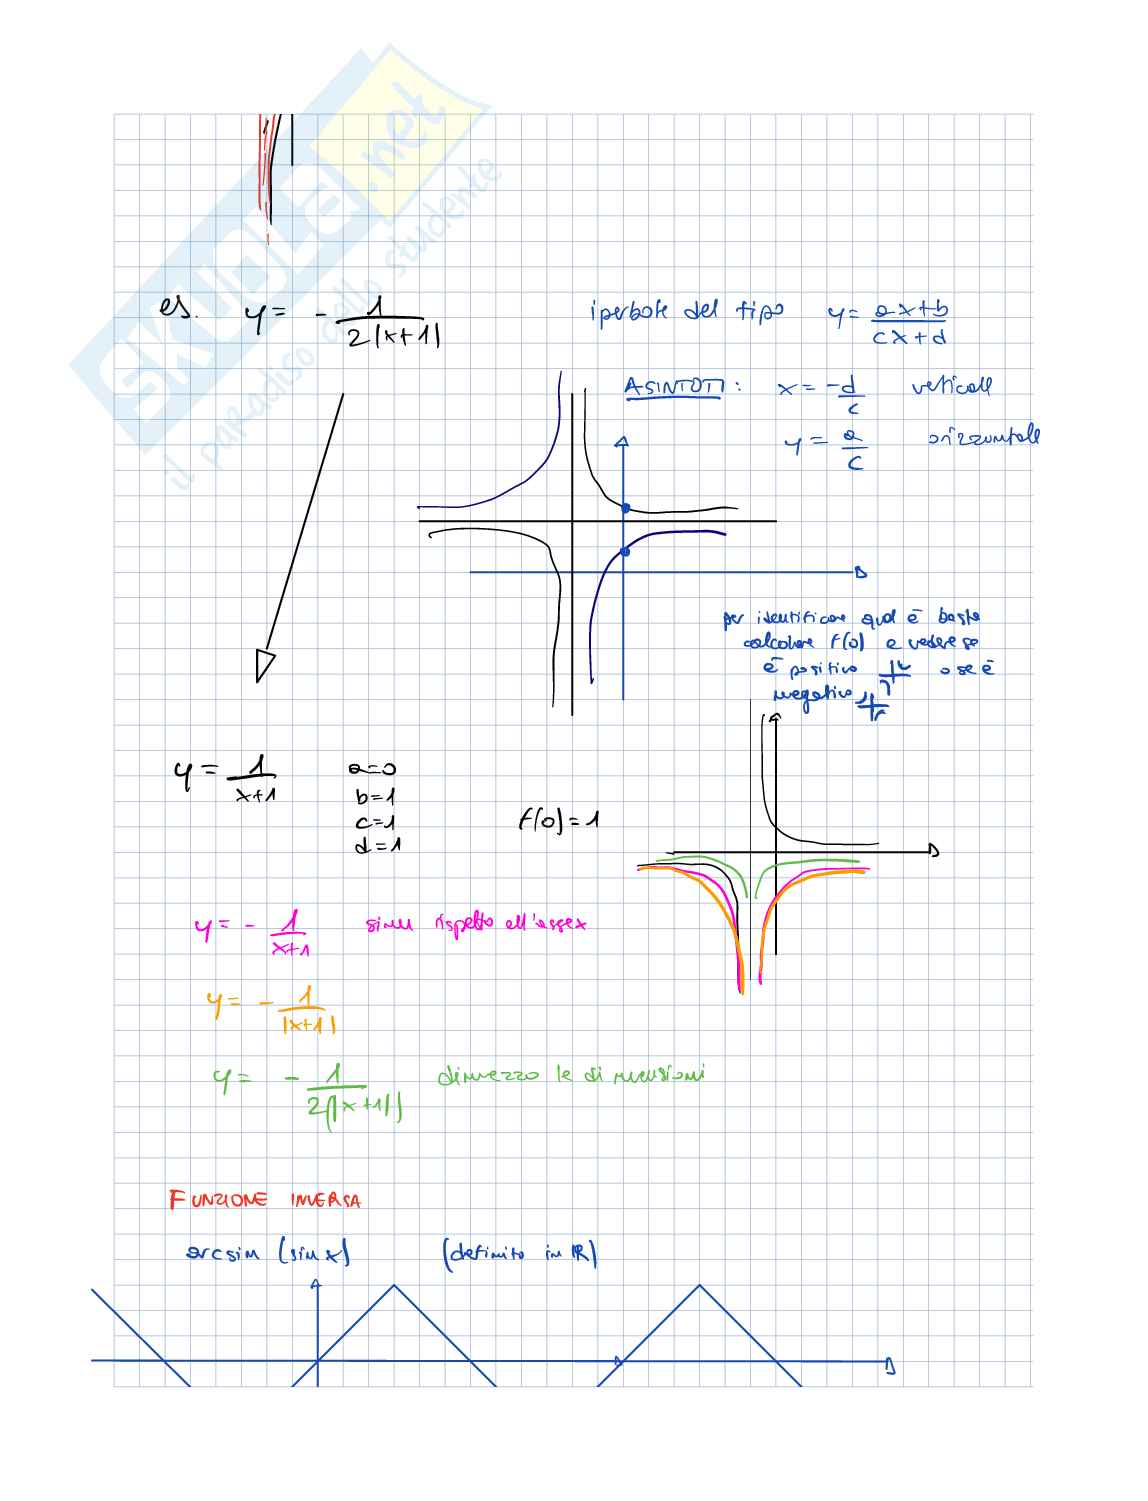 SKUOLA.net
il paradiso dello studente
es. y = - 1/2|x+1|
iperbole del tipo y = ax+b/cx+d
ASINTOTI: x = -d/c verticale
y = a/c orizzontale
per identificare qual è basta
calcolare f(0) e vedere se
è positivo o se è
negativo
y = 1/x+1
a=0
b=1
c=1
d=1
f(0)=1
y = - 1/x+1 simm rispetto all'asse x
y = - 1/|x+1|
y = - 1/2(|x+1|) dimezzo le dimensioni
FUNZIONE INVERSA
arcsin (sin x) (definito in ℝ)